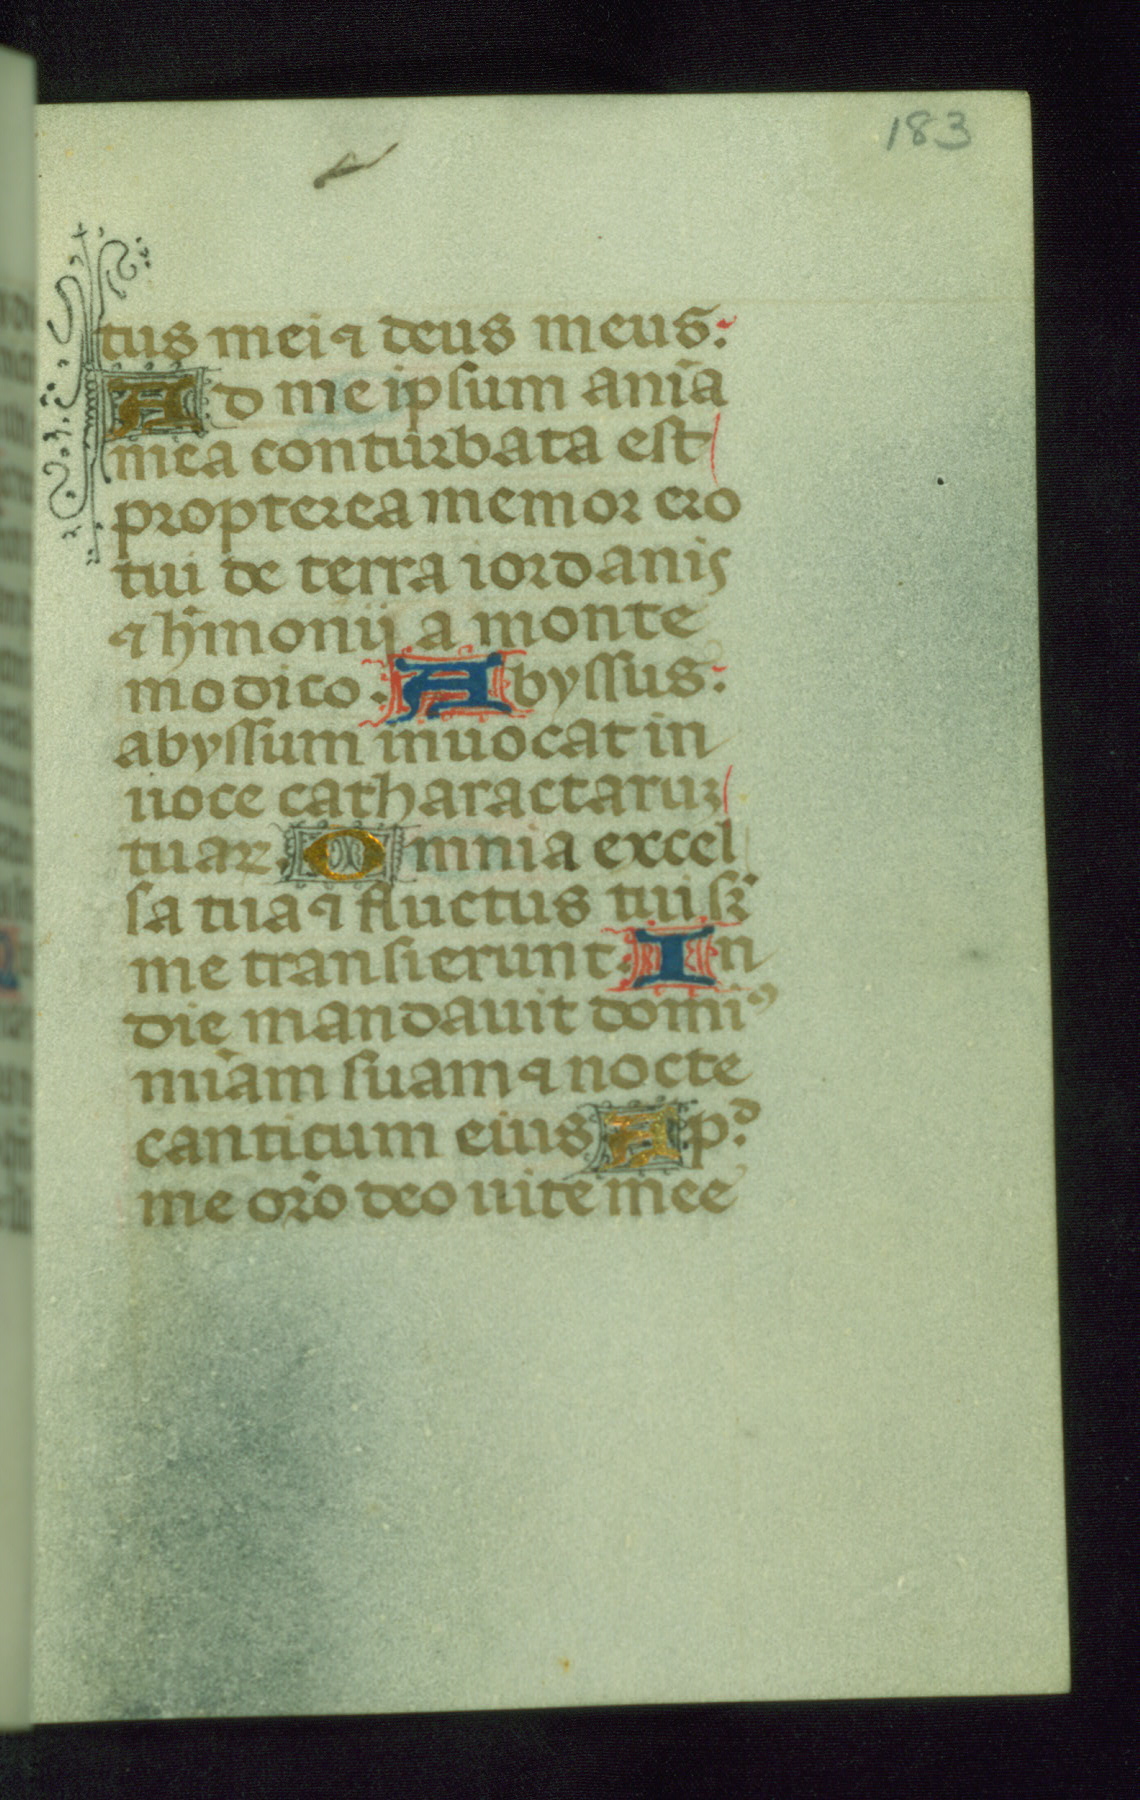 183
tus mei ⁊ deus meus:
Ad me ipsum aniā
mea conturbata est
propterea memor ero
tui de terra iordanis
⁊ hm̄onij a monte
modico. Abyssus:
abyssum inuocat in
uoce catharactaruʒ
tuaꝝ. Omnia excel
sa tua ⁊ fluctus tui sr̄
me transierunt. In
die mandauit domiꝰ
mīam suam ⁊ nocte
canticum eius Apᵈ:
me orō deo uite mee